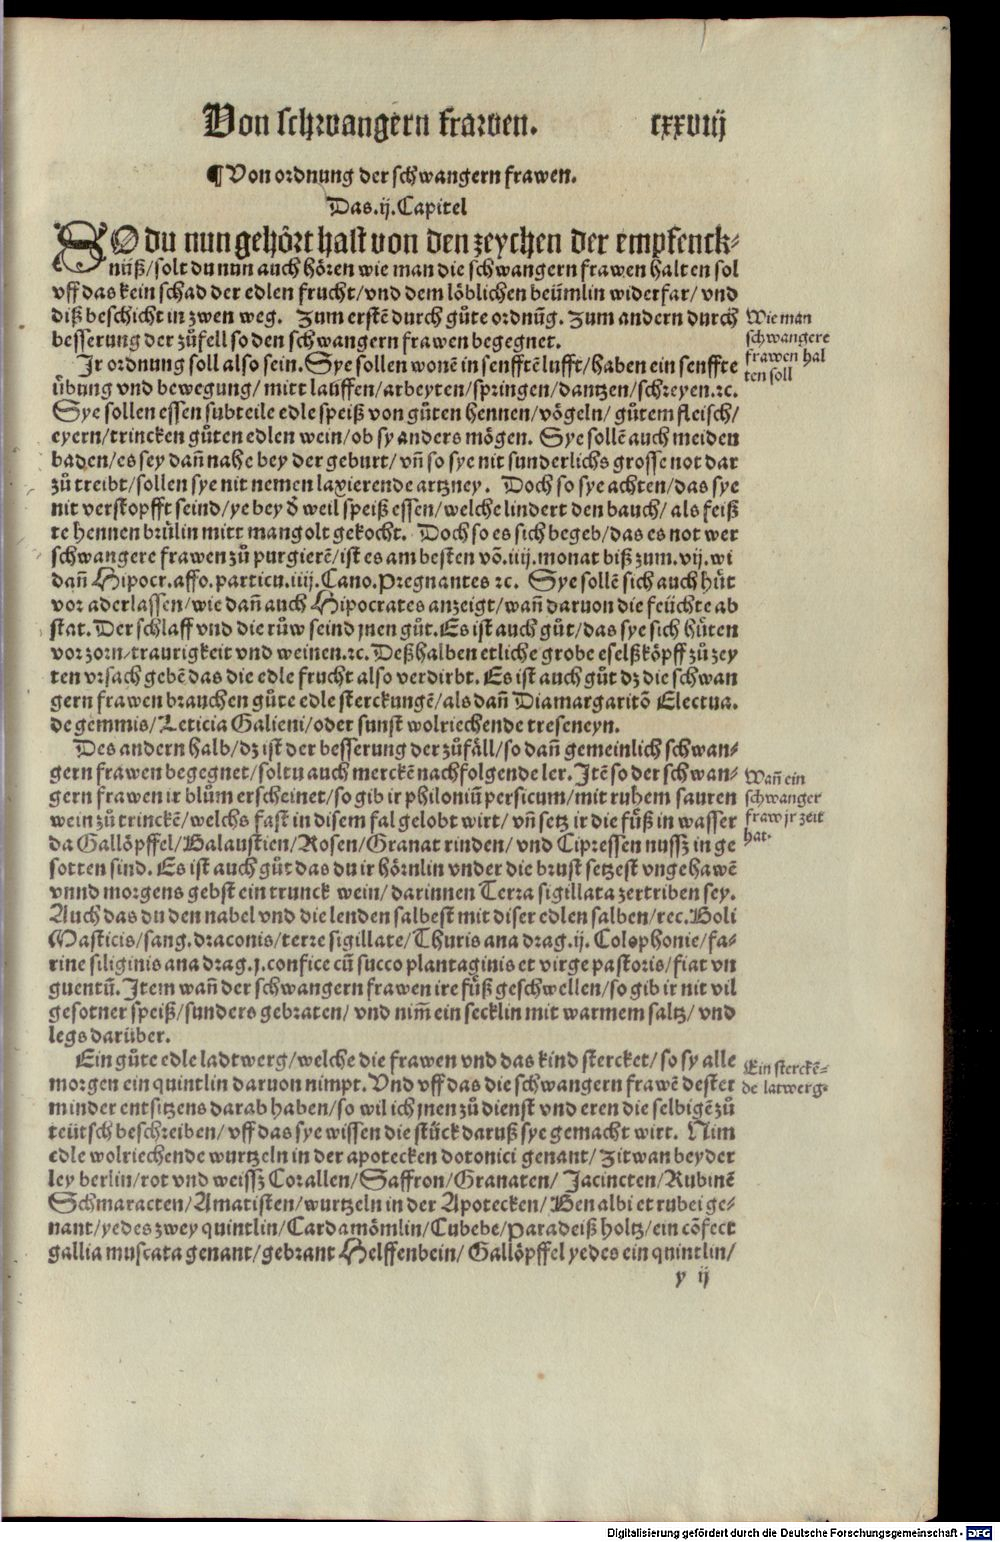 Von schwangern frawen. cxxviij
¶Von ordnung der schwangern frawen.
Das.ij.Capitel
SO du nun gehört hast von den zeychen der empfenck-
nüß/solt du nun auch hören wie man die schwangern frawen halten sol
vff das kein schad der edlen frucht/vnd dem löblichen beümlin widerfar/vnd
diß beschicht in zwen weg. Zum erstē durch gůte ordnūg. Zum andern durch
besserung der zůfell so den schwangern frawen begegnet.
Wie man
schwangere
frawen hal
ten soll
Ir ordnung soll also sein. Sye sollen wonē in senfftē lufft/haben ein senffte
übung vnd bewegung/ mitt lauffen/arbeyten/springen/dantzen/schreyen.ꝛc.
Sye sollen essen subteile edle speiß von gůten hennen/vögeln/ gůtem fleisch/
eyern/trincken gůten edlen wein/ob sy anders mögen. Sye sollē auch meiden
baden/es sey dañ nahe bey der geburt/vñ so sye nit sunderlichs grosse not dar
zů treibt/sollen sye nit nemen laxierende artzney. Doch so sye achten/das sye
nit verstopfft seind/ye bey d̕ weil speiß essen/welche lindert den bauch/ als feiß
te hennen brülin mitt mangolt gekocht. Doch so es sich begeb/das es not wer
schwangere frawen zů purgierē/ist es am besten vō.iiij.monat biß zum.vij.wi
dañ Hipocr.affo.particu.iiij.Cano.Pregnantes ꝛc. Sye sollē sich auch hüt
vor aderlassen/wie dañ auch Hipocrates anzeigt/wañ daruon die feüchte ab
stat. Der schlaff vnd die růw seind jnen gůt. Es ist auch gůt/das sye sich hüten
vor zorn/traurigkeit vnd weinen.ꝛc. Deßhalben etliche grobe eselßköpff zů zey
ten vrsach gebē das die edle frucht also verdirbt. Es ist auch gůt dz die schwan
gern frawen brauchen gůte edle sterckungē/als dañ Diamargaritō Electua.
de gemmis/Leticia Galieni/oder sunst wolriechende treseneyn.
Des andern halb/dz ist der besserung der zůfäll/so dañ gemeinlich schwan-
gern frawen begegnet/soltu auch merckē nachfolgende ler. Itē so der schwan-
gern frawen ir blům erscheinet/so gib ir philoniū persicum/mit ruhem sauren
wein zů trinckē/welchs fast in disem fal gelobt wirt/vñ setz ir die füß in wasser
da Gallöpffel/Balaustien/Rosen/Granat rinden/ vnd Cipressen nussz in ge
sotten sind. Es ist auch gůt das du ir hörnlin vnder die brust setzest vngehawē
vnnd morgens gebst ein trunck wein/ darinnen Terra sigillata zertriben sey.
Auch das du den nabel vnd die lenden salbest mit diser edlen salben/rec. Boli
Masticis/sang.draconis/terre sigillate/Thuris ana drag.ij. Colophonie/fa-
rine siliginis ana drag.j.confice cū succo plantaginis et virge pastoris/fiat vn
guentū. Item wañ der schwangern frawen ire füß geschwellen/so gib ir nit vil
gesotner speiß/sunders gebraten/ vnd nim̄ ein secklin mit warmem saltz/ vnd
legs darüber.
Wañ ein
schwanger
fraw jr zeit
hat.
Ein gůte edle ladtwerg/welche die frawen vnd das kind stercket/so sy alle
morgen ein quintlin daruon nimpt. Vnd vff das die schwangern frawē dester
minder entsitzens darab haben/so wil ich jnen zů dienst vnd eren die selbigē zů
teütsch beschreiben/ vff das sye wissen die stück daruß sye gemacht wirt. Nim
edle wolriechende wurtzeln in der apotecken dotonici genant/ Zitwan beyder
ley berlin/rot vnd weissz Corallen/Saffron/Granaten/ Jacincten/Rubinē
Schmaracten/Amatisten/wurtzeln in der Apotecken/Ben albi et rubei ge-
nant/yedes zwey quintlin/Cardamömlin/Cubebe/Paradeiß holtz/ein cōfect
gallia muscata genant/gebrant Helffenbein/ Gallöpffel yedes ein quintlin/
Ein sterckē-
de latwerg.
y ij
Digitalisierung gefördert durch die Deutsche Forschungsgemeinschaft - DFG